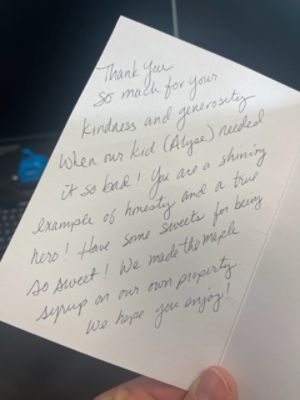 Thank you
so much for your
kindness and generosity
when our kid (Alyse) needed
it so bad! You are a shining
example of honesty and a true
hero! Have some sweets for being
so sweet! We made the maple
syrup on our own property.
We hope you enjoy!